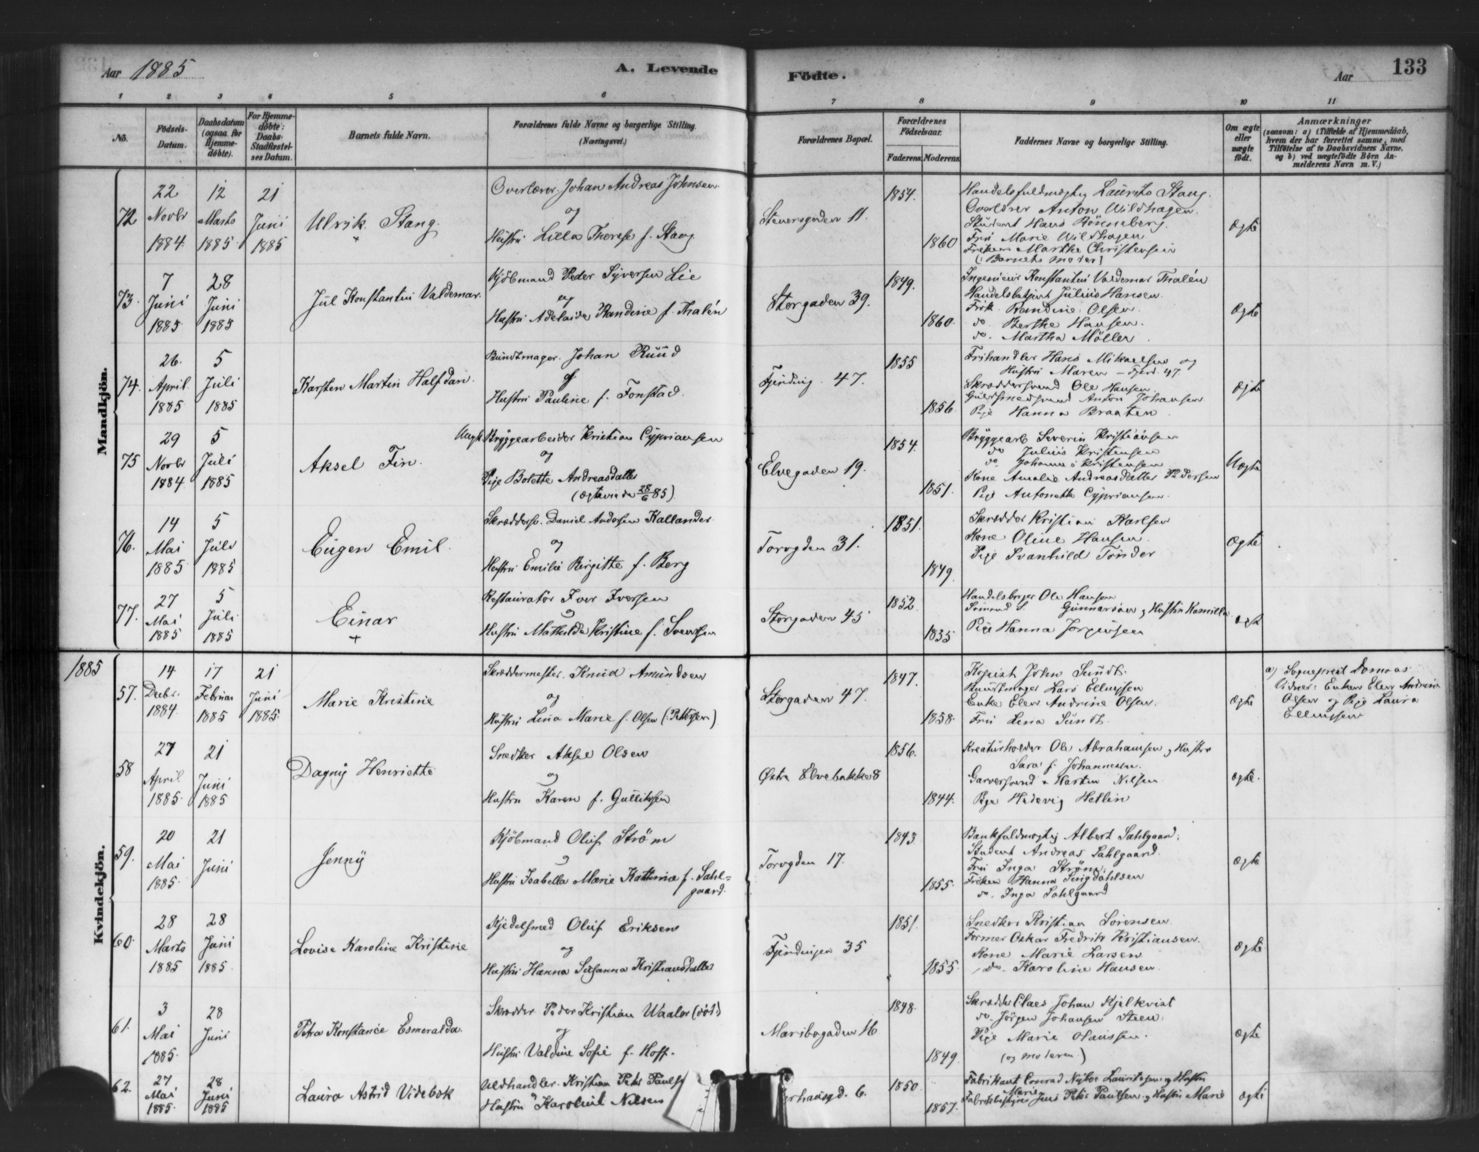 Aar 1885
A. Levende Födte.
Aar
133
1 2 3 4 5 6 7 8 9 10 11
No.
Födsels-Datum.
Daabsdatum (ogsaa for Hjemme-döbte).
For Hjemme-döbte: Daabs-Stadfæstel-ses Datum.
Barnets fulde Navn.
Forældrenes fulde Navne og borgerlige Stilling. (Næringsvei.)
Forældrenes Bopæl.
Forældrenes Födselsaar.
Faderens. Moderens.
Faddernes Navne og borgerlige Stilling.
Om ægte eller uægte födt.
Anmærkninger
Mandkjön.
72
22 Novbr 1884
12 Marts 1885
21 Juni 1885
Ulrik Stang
Overlærer Johan Andreas Johnsen
og
Hustru Lilla Therese f. Stang
Stenersgaden 11.
1854.
1860
Handelsfuldmægtig Laurits Stang.
Overlærer Anton Wildhagen
Student Hans Rönneberg.
Fru Marie Wildhagen
Frøken Marthe Christensen
(Barnets moder)
Ægte
73.
7 Juni 1885
28 Juni 1885
Jul Konstantin Valdemar
Kjöbmand Peder Syversen Lie
og
Hustru Adelaide Randine f. Thalén
Storgaden 39.
1849.
1860.
Ingenieur Konstantin Valdemar Thalén
Handelsbetjent Julius Hansen
Frøk. Randine Olsen.
do. Berthe Hansen.
do. Martha Möller.
Ægte
74.
26. April 1885
5 Juli 1885
Karsten Martin Halfdan
Bundtmager Johan Ruud
og
Hustru Pauline f. Fonstad.
Fjerding. 47.
1855
1856.
Frihandler Hans Mikaelsen og
Hustru Maren - Fjerd. 47.
Skræddersvend Ole Hansen
Guldsmedsvend Anton Johansen
Pige Hanna Braaten
Ægte
75
29 Novbr 1884
5 Juli 1885
Aksel Finn.
Ungk. Bryggearbeider Kristian Cyprianssen
og
Pige Bolette Andreasdatter
(Ægtevie de 28/6 85)
Elvegaden 19.
1854.
1851.
Bryggearb Severin Kristiansen
do Julius Kristensen
do. Johannes Kristensen
Kone Amalie Andreasdatter Pedersen
Pige Antonette Cypriansen.
Uægte
76.
14 Mai 1885
5 Juli 1885
Eugen Emil.
Skræddersv. Daniel Andersen Kallander
og
Hustru Emilie Birgitte f. Berg
Torvgaden 31.
1851.
1849.
Skrædder Kristian Karlsen
Kone Oline Hansen.
Pige Svanhild Tønder
Ægte
77.
27 Mai 1885
5 Juli 1885
Einar
+
Restauratør Iver Iversen
og
Hustru Mathilde Kristine f. Svendsen
Storgaden 45
1852.
1835
Handelsborger Ole Hansen
Gunnarson og Hustru Kamilla
Pige Hanna Jørgensen
Ægte
1885
Kvindekjön.
57.
14 Decbr. 1884
17 Februar 1885
21 Juni 1885
Marie Kristine
Skræddermester Knud Amundsen
og
Hustru Lina Marie f. Olsen (Pettersen)
Storgaden 47.
1847.
1858.
Kopist John Sundt.
Bundtmager Lars Ellingsen
Enke Elen Andrine Olsen.
Fru Lena Sundt.
Ægte
a) Sognepræst
Vidner: Enken Elen Andrine
Olsen og Pige Laura
Ellingsen
58
27 April 1885
21 Juni 1885
Dagny Henriette
Snedker Aksel Olsen
og
Hustru Karen f. Gulliksen
Østre Elvebakke 8
1856.
1844.
Kreaturhandler Ole Abrahamsen og Hustru
Sara f. Johannesen.
Garversvend Martin Nilsen
Pige Hedevig Hellin
Ægte.
59.
20 Mai 1885.
21 Juni
Jenny
Kjöbmand Oluf Strøm
og
Hustru Isabella Marie Kathrine f. Sahl=
gaard.
Torvgden 17.
1843
1855.
Bankfuldmægtig Albert Sahlgaard.
Student Andreas Sahlgaard.
Fru Inga Strøm.
Frøken Hanna Ringdahlsen
do. Inga Sahlgaard
Ægte
60.
28 Marts 1885
28 Juni 1885.
Lovise Karoline Kristine
Kjedelsmed Oluf Eriksen
og
Hustru Hanna Susanna Kristiansdatter
Fjerdingen 35
1851.
1855
Snedker Kristian Sørensen
Former Oskar Fredrik Kristiansen
Kone Marie Larsen
do. Karoline Hansen.
Ægte
61.
3 Mai 1885.
28 Juni
Petra Konstance Esmeralda
Skrædder Peder Kristian Waaler (død)
og
Hustru Valdine Sofie f. Hoff.
Maribogaden 16
1848.
1849.
Skrædder Claes Johan Hjelkvist
do. Jørgen Johansen Steen.
Pige Marie Clausen.
(og moderen)
Ægte
62.
27 Mai 1885.
28 Juni 1885
Laura Astrid Videbek
Uldhandler Kristian Peter Pauls
Hustru Karoline Nilsen
gd. 6.
1850.
1857.
Fabrikant Conrad Lauritsen og Hustru
Marie
Fabrikbestyrer Jens Peter Paulsen og Hustru Marie
Ægte